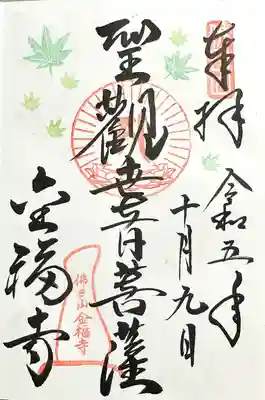 奉拝
令和五年
十月九日
聖観世音菩薩
佛日山金福寺
金福寺